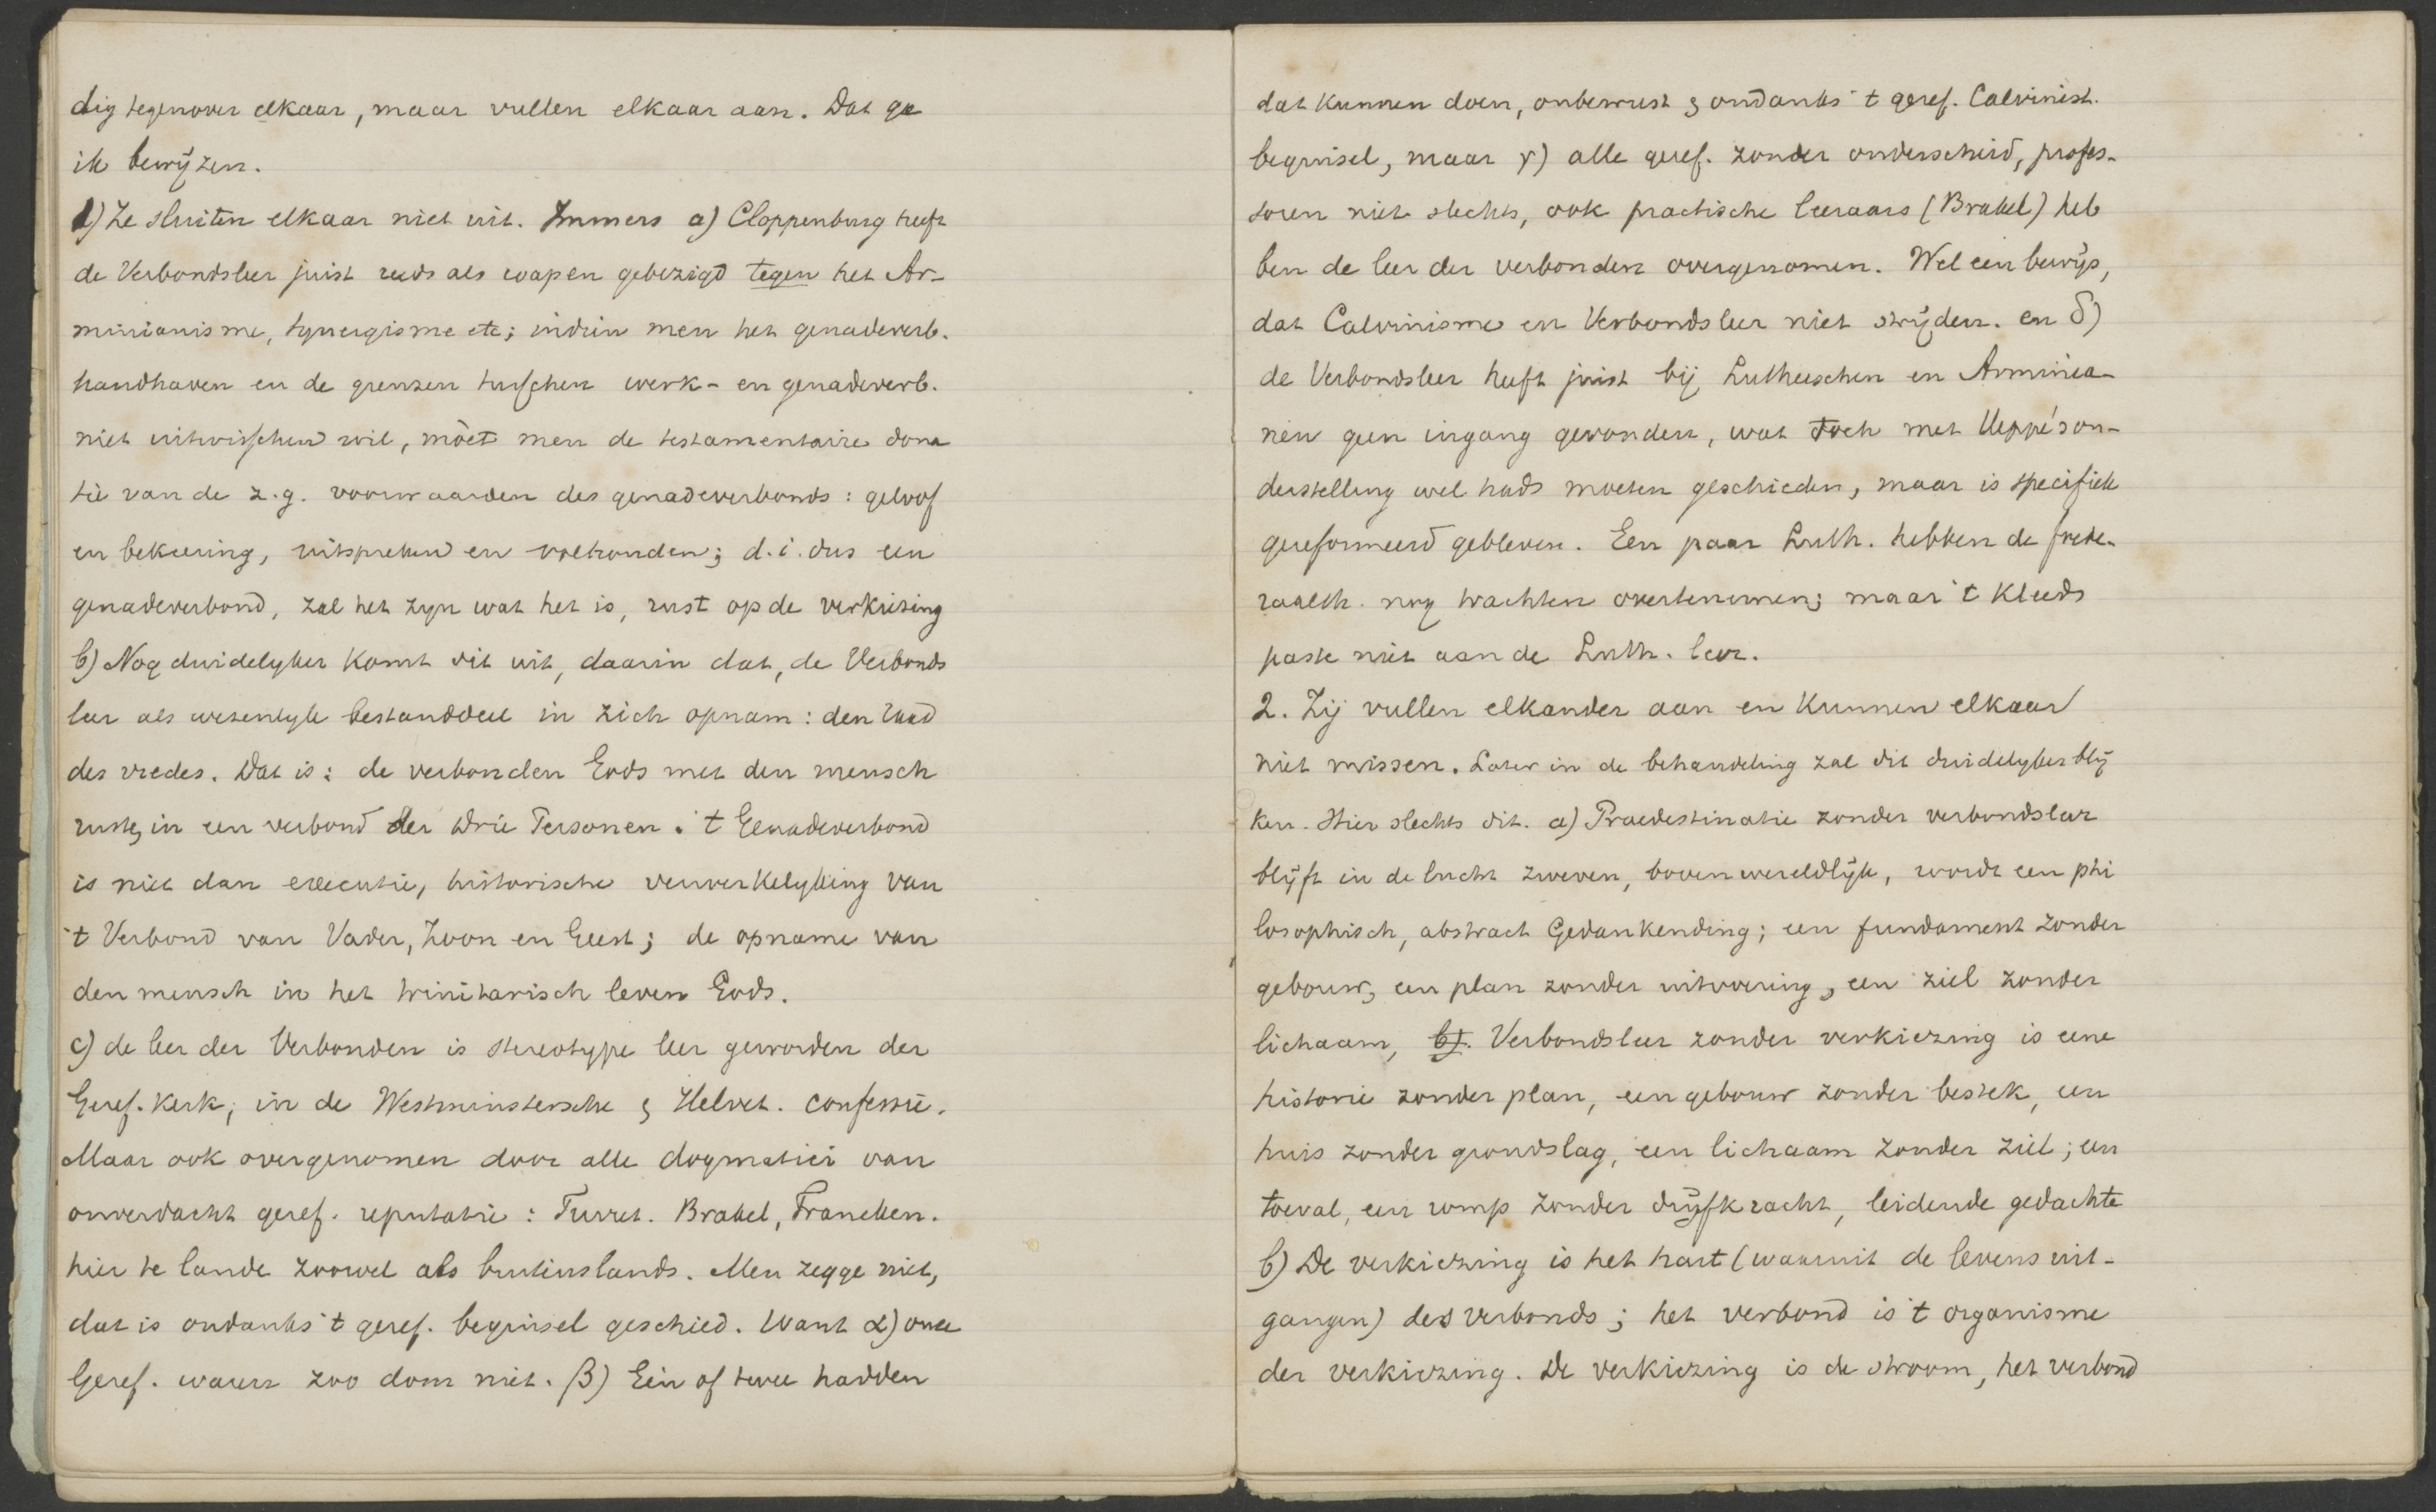 dig tegenover elkaar, maar vullen elkaar aan. Dat ga
ik bewijzen.
1) Ze sluiten elkaar niet uit. Immers a) Cloppenburg heeft
de Verbondsleer juist reeds als wapen gebezigd tegen het Ar-
minianisme, synergisme etc; indien men het genadeverb.
handhaven en de grenzen tusschen werk- en genadeverb.
niet uitwisschen wil, mòet men de testamentaire dona
tie van de z.g. voorwaarden des genadeverbonds: geloof
en bekeering, uitspreken en volhouden; d.i. dus een
genadeverbond, zal het zyn wat het is, rust op de verkiezing
b) Nog duidelyker komt dit uit, daarin dat, de Verbonds
leer als wesenlyk bestanddeel in zich opnam: den Raad
des vredes. Dat is: de verbonden Gods met den mensch
rusten in een verbond der drie Personen. 't Genadeverbond
is niet dan executie, historische verwerkelyking van
't Verbond van Vader, Zoon en Geest; de opname van
den mensch in het trinitarisch leven Gods.
c) de leer der Verbonden is stereotype leer geworden der
Geref. Kerk; in de Westminstersche & Helvet. confessie.
Maar ook overgenomen door alle dogmatici van
onverdacht geref. reputatie: Turret. Brakel, Francken.
hier te lande zoowel als buitenslands. Men zegge niet,
dat is ondanks 't geref. beginsel geschied. Want α) onze
Geref. waren zoo dom niet. β) Eén of twee hadden
dat kunnen doen, onbewust & ondanks 't geref. Calvinist.
beginsel, maar γ) alle geref. zonder onderscheid, profes-
soren niet slechts, ook practische leeraars (Brakel) heb
ben de leer der verbonden overgenomen. Wel een bewijs,
dat Calvinisme en Verbondsleer niet strijden. en δ)
de Verbondsleer heeft juist bij Lutherschen en Arminia-
nen geen ingang gevonden, wat toch met Heppe's on-
derstelling wel hads moeten geschieden, maar is specifiek
gereformeerd gebleven. Een paar Luth. hebben de foede-
raalth. nog trachten overtenemen; maar 't kleeds
paste niet aan de Luth. leer.
2. Zij vullen elkander aan en kunnen elkaar
niet missen. Later in de behandeling zal dit duidelyker blij
ken. Hier slechts dit. a) Praedestinatie zonder verbondsleer
blijft in de lucht zweven, bovenwereldlijk, wordt een phi
losophisch, abstract Gedankending; een fundament zonder
gebouw, een plan zonder uitvoering, een ziel zonder
lichaam, b). Verbondsleer zonder verkiezing is eene
historie zonder plan, een gebouw zonder bestek, een
huis zonder grondslag, een lichaam zonder ziel; een
toeval, een romp zonder drijfkracht, leidende gedachte
b) De verkiezing is het hart (waaruit de levens uit-
gangen) des verbonds; het verbond is 't organisme
der verkiezing. De verkiezing is de stroom, het verbond